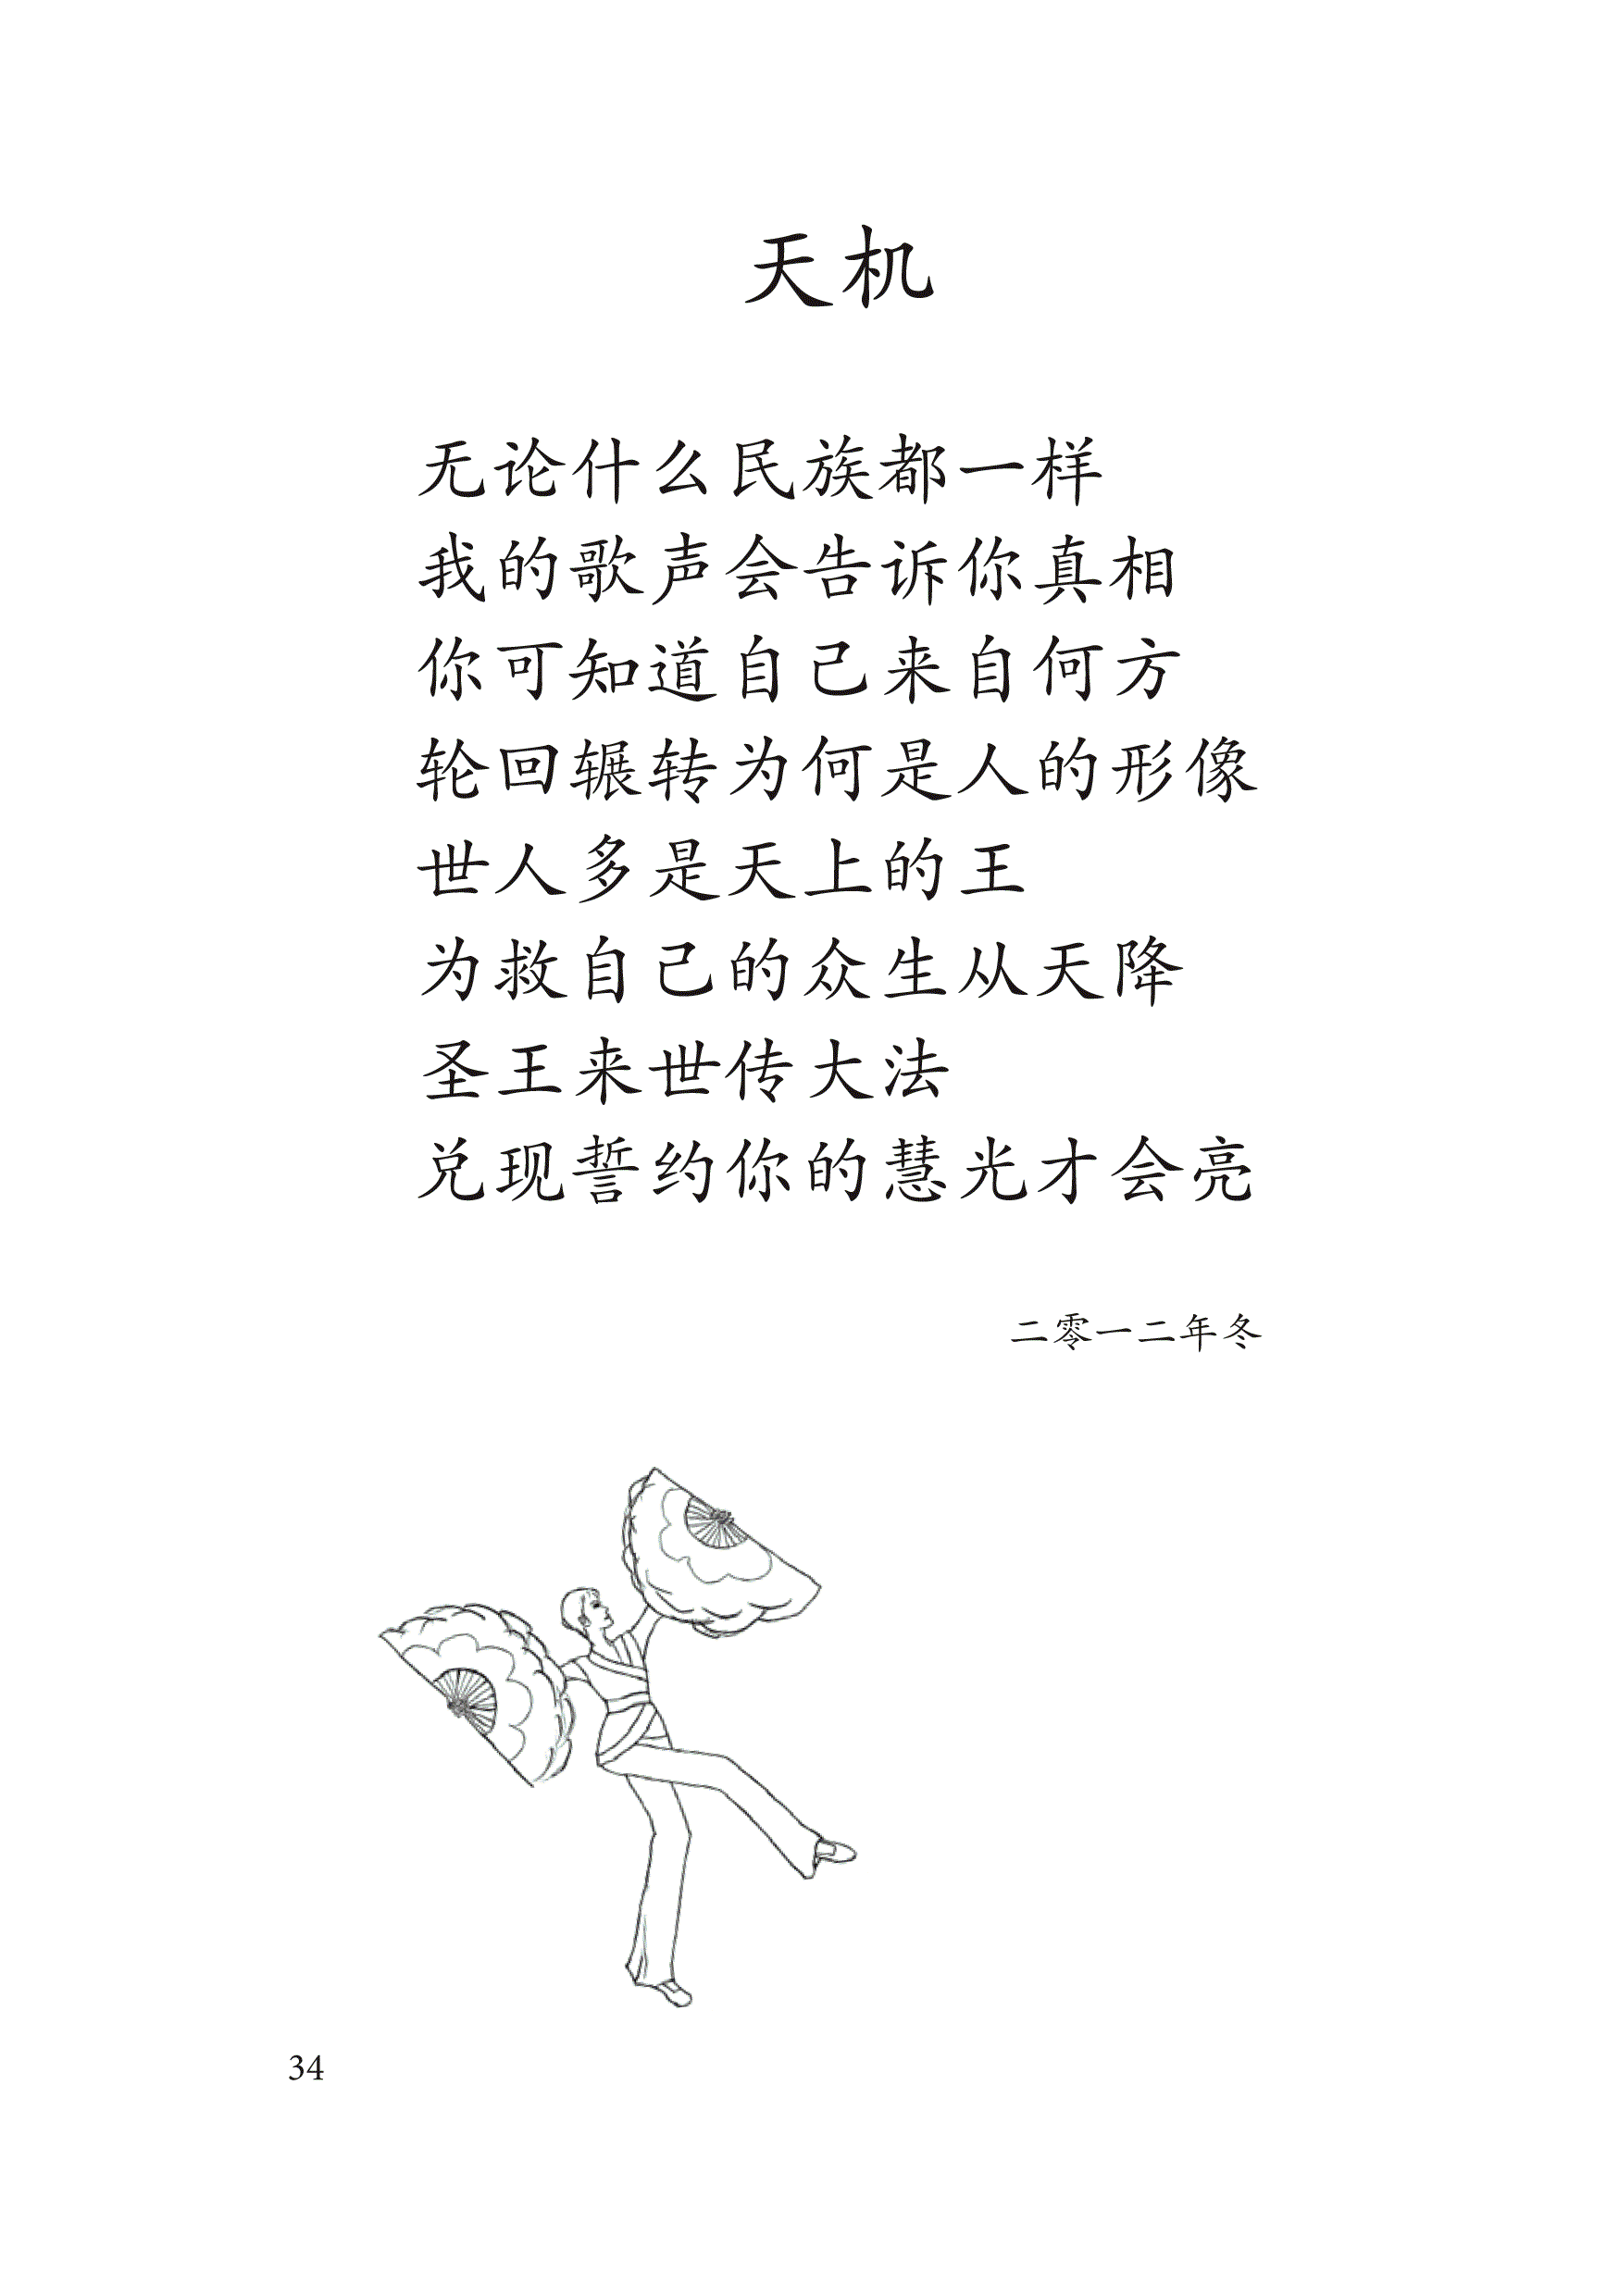 天机
无论什么民族都一样
我的歌声会告诉你真相
你可知道自己来自何方
轮回辗转为何是人的形像
世人多是天上的王
为救自己的众生从天降
圣王来世传大法
兑现誓约你的慧光才会亮
二零一二年冬
34